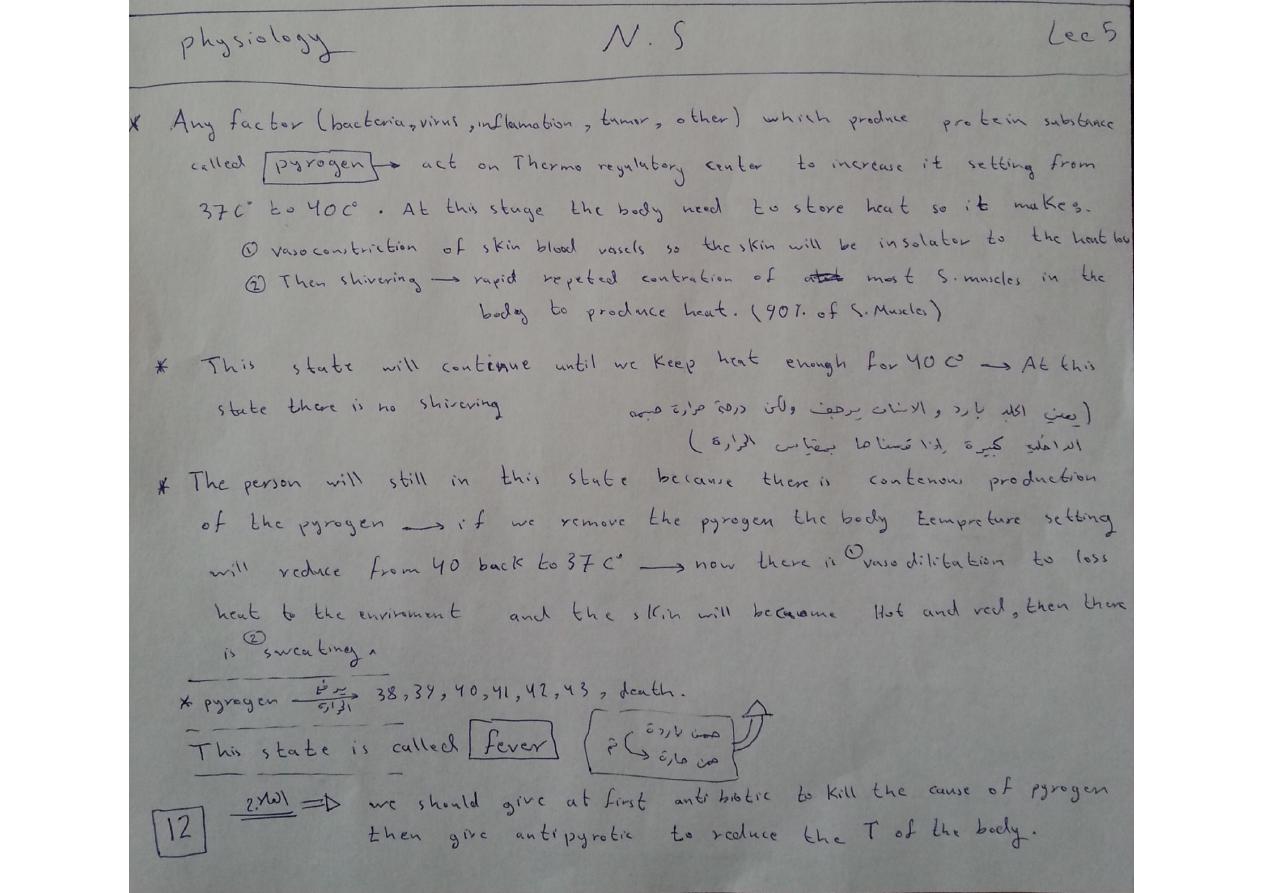 physiology N.S Lec 5
* Any factor (bacteria, virus, inflamation, tumor, other) which produce protein substance
called pyrogen → act on Thermo regulutory center to increase it setting from
37 C° to 40 C°. At this stage the body need to store heat so it makes.
① vasoconstriction of skin blood vasels so the skin will be insolator to the heat
② Then shivering → rapid repeted contration of most S. muscles in the
body to produce heat. (90% of S. Muscles)
* This state will continue until we Keep heat enough for 40 C° → At this
state there is no shivering
(يعني الجلد بارد و الانسان يرجف ولكن درجة حرارة جسمه
الداخلية كبيرة إذا قسناها بمقياس الحرارة)
* The person will still in this state because there is contenous production
of the pyrogen → if we remove the pyrogen the body tempreture setting
will reduce from 40 back to 37 C° → now there is ① vasodilitation to loss
heat to the enviroment and the skin will become Hot and red, then there
is ② sweating.
* pyrogen يرفع الحرارة → 38, 39, 40, 41, 42, 43, death.
This state is called fever
حمى باردة
ثم
حمى حارة
⇒ we should give at first antibiotic to kill the cause of pyrogen
then give antipyrotic to reduce the T of the body.
12